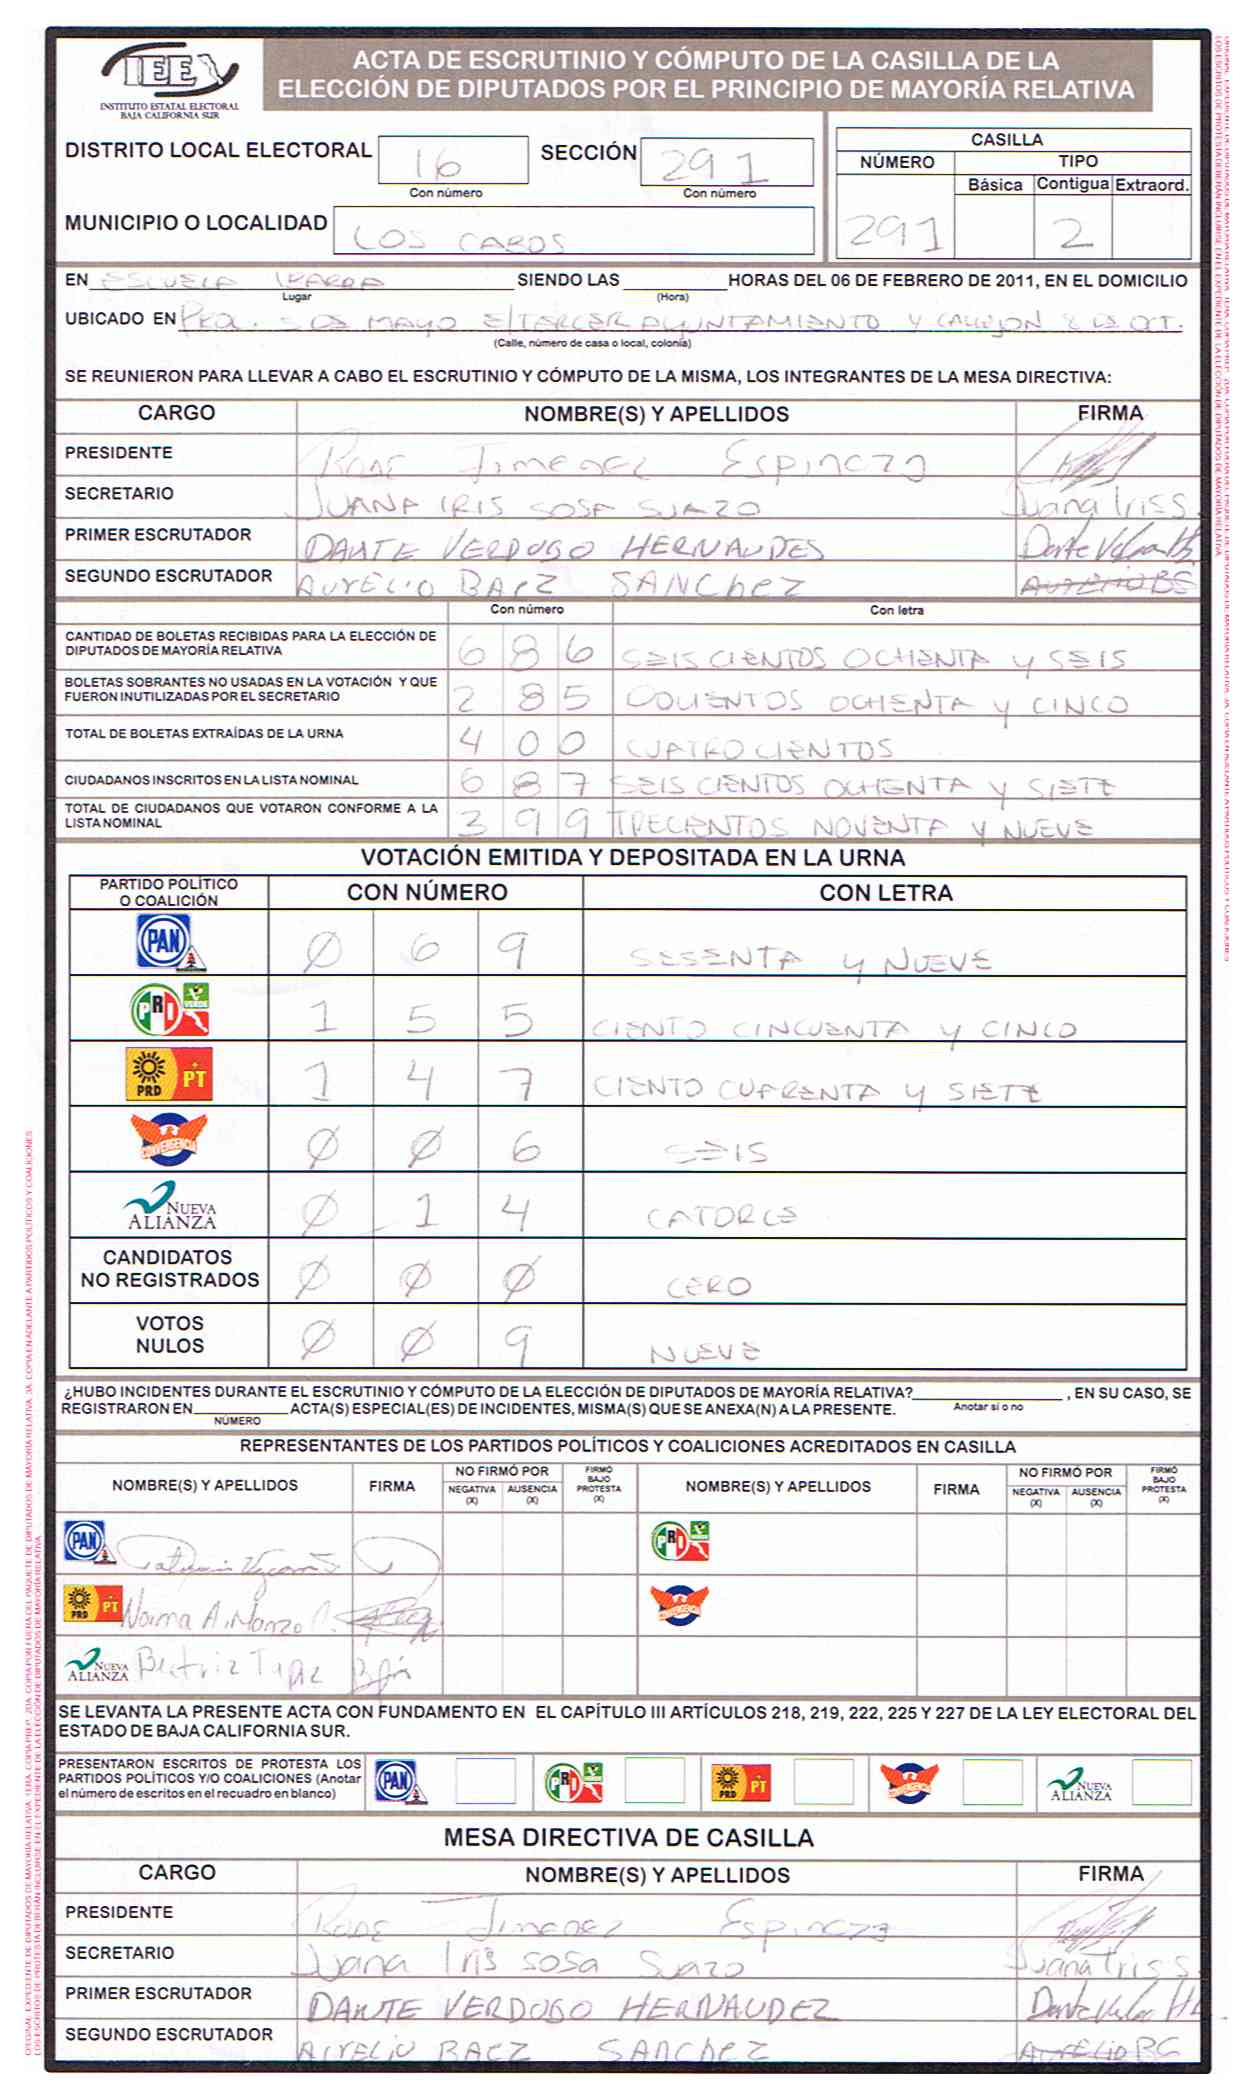 IEEX
INSTITUTO ESTATAL ELECTORAL
BAJA CALIFORNIA SUR
ACTA DE ESCRUTINIO Y CÓMPUTO DE LA CASILLA DE LA
ELECCIÓN DE DIPUTADOS POR EL PRINCIPIO DE MAYORÍA RELATIVA
DISTRITO LOCAL ELECTORAL 16 SECCIÓN 291
Con número Con número
MUNICIPIO O LOCALIDAD LOS CABOS
CASILLA
NÚMERO TIPO
Básica Contigua Extraord.
291 2
EN ESCUELA IBARRA SIENDO LAS HORAS DEL 06 DE FEBRERO DE 2011, EN EL DOMICILIO
Lugar (Hora)
UBICADO EN PRQ. 5 DE MAYO E/TERCER AYUNTAMIENTO Y CALLEJON 8 DE OCT.
(Calle, número de casa o local, colonia)
SE REUNIERON PARA LLEVAR A CABO EL ESCRUTINIO Y CÓMPUTO DE LA MISMA, LOS INTEGRANTES DE LA MESA DIRECTIVA:
CARGO NOMBRE(S) Y APELLIDOS FIRMA
PRESIDENTE JIMENEZ ESPINOZA
SECRETARIO JUANA IRIS SOSA SUAZO Juana Iris S.
PRIMER ESCRUTADOR DANTE VERDUGO HERNAUDES
SEGUNDO ESCRUTADOR AURELIO BAEZ SANCHEZ
Con número Con letra
CANTIDAD DE BOLETAS RECIBIDAS PARA LA ELECCIÓN DE
DIPUTADOS DE MAYORÍA RELATIVA 6 8 6 SEISCIENTOS OCHENTA Y SEIS
BOLETAS SOBRANTES NO USADAS EN LA VOTACIÓN Y QUE
FUERON INUTILIZADAS POR EL SECRETARIO 2 8 5 DOCIENTOS OCHENTA Y CINCO
TOTAL DE BOLETAS EXTRAÍDAS DE LA URNA 4 0 0 CUATROCIENTOS
CIUDADANOS INSCRITOS EN LA LISTA NOMINAL 6 8 7 SEISCIENTOS OCHENTA Y SIETE
TOTAL DE CIUDADANOS QUE VOTARON CONFORME A LA
LISTA NOMINAL 3 9 9 TRECIENTOS NOVENTA Y NUEVE
VOTACIÓN EMITIDA Y DEPOSITADA EN LA URNA
PARTIDO POLÍTICO
O COALICIÓN CON NÚMERO CON LETRA
PAN 0 6 9 SESENTA Y NUEVE
PRI VERDE 1 5 5 CIENTO CINCUENTA Y CINCO
PRD PT 1 4 7 CIENTO CUARENTA Y SIETE
CONVERGENCIA 0 0 6 SEIS
NUEVA
ALIANZA 0 1 4 CATORCE
CANDIDATOS
NO REGISTRADOS 0 0 0 CERO
VOTOS
NULOS 0 0 9 NUEVE
¿HUBO INCIDENTES DURANTE EL ESCRUTINIO Y CÓMPUTO DE LA ELECCIÓN DE DIPUTADOS DE MAYORÍA RELATIVA? , EN SU CASO, SE
REGISTRARON EN ACTA(S) ESPECIAL(ES) DE INCIDENTES, MISMA(S) QUE SE ANEXA(N) A LA PRESENTE. Anotar sí o no
NÚMERO
REPRESENTANTES DE LOS PARTIDOS POLÍTICOS Y COALICIONES ACREDITADOS EN CASILLA
NOMBRE(S) Y APELLIDOS FIRMA NO FIRMÓ POR NEGATIVA (X) AUSENCIA (X) FIRMÓ BAJO PROTESTA (X) NOMBRE(S) Y APELLIDOS FIRMA NO FIRMÓ POR NEGATIVA (X) AUSENCIA (X) FIRMÓ BAJO PROTESTA (X)
PAN PRI VERDE
PRD PT Norma A. Manzo CONVERGENCIA
NUEVA ALIANZA Beatriz
SE LEVANTA LA PRESENTE ACTA CON FUNDAMENTO EN EL CAPÍTULO III ARTÍCULOS 218, 219, 222, 225 Y 227 DE LA LEY ELECTORAL DEL
ESTADO DE BAJA CALIFORNIA SUR.
PRESENTARON ESCRITOS DE PROTESTA LOS
PARTIDOS POLÍTICOS Y/O COALICIONES (Anotar
el número de escritos en el recuadro en blanco)
PAN PRI PRD PT CONVERGENCIA NUEVA ALIANZA
MESA DIRECTIVA DE CASILLA
CARGO NOMBRE(S) Y APELLIDOS FIRMA
PRESIDENTE Jimenez Espinoza
SECRETARIO Juana Iris Sosa Suazo Juana Iris S.
PRIMER ESCRUTADOR DANTE VERDUGO HERNAUDEZ
SEGUNDO ESCRUTADOR AURELIO BAEZ SANCHEZ